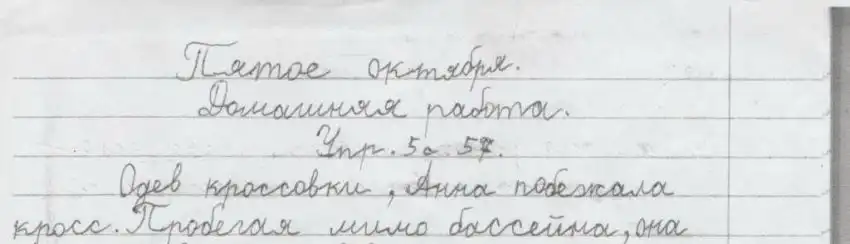 Пятое октября.
Домашняя работа.
Упр. 5 с. 57.
Одев кроссовки, Анна побежала
кросс. Пробегая мимо бассейна, она